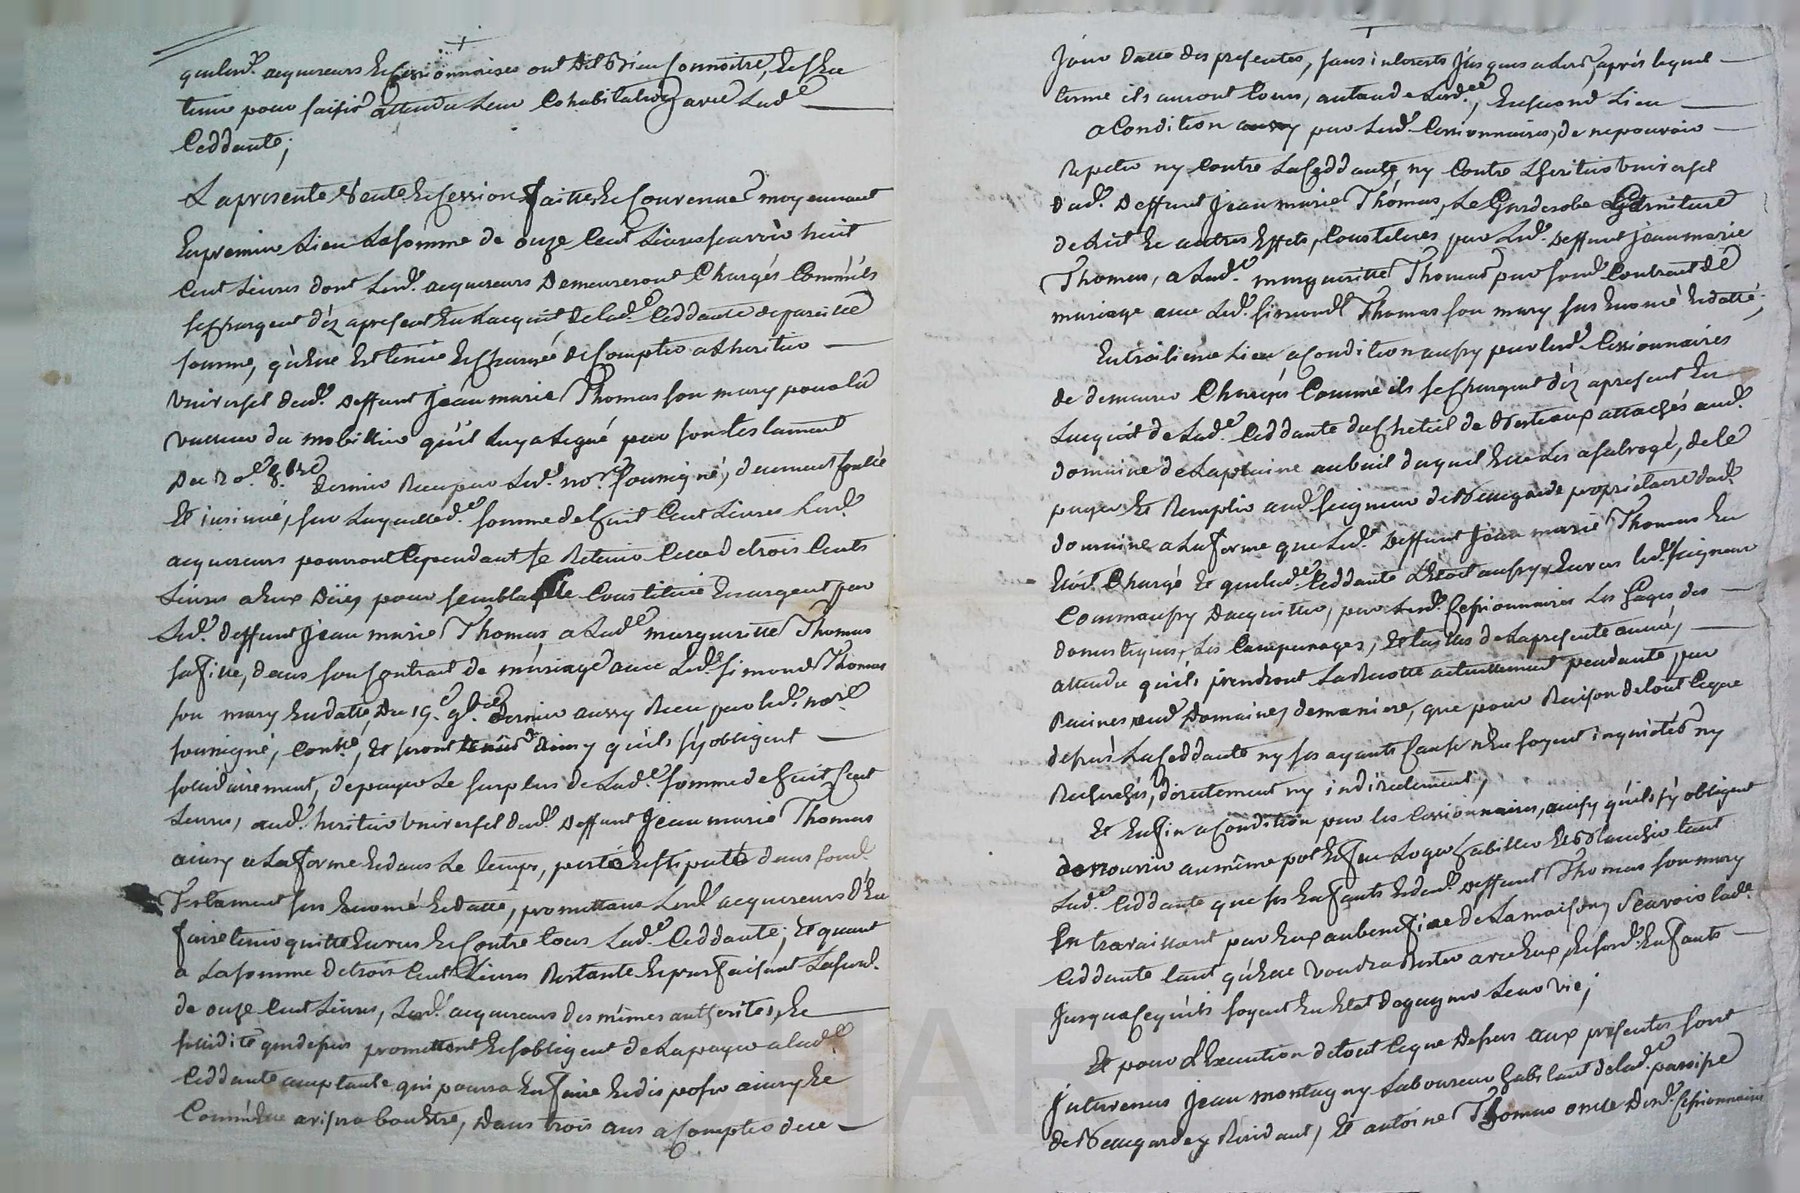 que lesd. acquereurs et cessionnaires ont dit bien connoitre, et s'en
tenir pour saisis attendu leur cohabitation avec lad.e
ceddante;
La presente vente et cession faittes et convenues moyennant
en premier lieu la somme de onze cent livres scavoir huit
cent livres dont lesd. acquereurs demeureront chargés comm'ils
se chargent déz apresent en l'acquit de lad.e ceddante de pareille
somme, qu'elle est tenüe et chargée de compter a l'heritier
universel dud. deffunt Jean marie Thomas son mary pour la
valleur du mobillier qu'il luy a legué par son testament
du 20.e 8.bre dernier Recu par led. no.re soussigné, deuement controllé
et insinué, sur laquelle d.e somme de huit cent livres lesd.
acquereurs pourront cependant se Retenir celle de trois cents
livres a eux düe, pour semblable constituée en argent par
led. deffunt Jean marie Thomas a lad.e margueritte Thomas
sa fille, dans son contrat de mariage avec led. Simond Thomas
son mary en datte du 19.e 9.bre dernier aussy Recu par led. no.re
soussigné, con.lé, et seront tenus ainsy qu'ils s'y obligent
solidairement, de payer le surplus de lad.e somme de huit cent
livres, aud. heritier universel dud. deffunt Jean marie Thomas
ainsy a la forme et dans le temps, porté et stipullé dans sond.
Testament sus enoncé et datté, promettant lesd. acquereurs d'en
faire tenir quitte envers et contre tous lad.e ceddante; et quant
a la somme de trois cent livres Restante et parfaisant lasusd.
de onze cent livres, lesd. acquereurs des mêmes authorités, et
solidité que dessus promettent et s'obligent de la payer a lad.e
ceddante acceptante qui pourra en faire et disposer ainsy et
comm'elle avisera bon être, dans trois ans a compter de ce
jour datte des presentes, sans interests jusques alors, après lequel
terme ils auront cours, au taux de l'ord.ce, en second lieu
a condition aussy par lesd. cessionnaires, de ne pouvoir
Repeter ny contre la ceddante, ny contre l'heritier universel
dud. deffunt Jean marie Thomas, le Garderobe Garniture
de lit et autres effets, constitués par led. deffunt Jean marie
Thomas, a lad.e margueritte Thomas par sond. contract de
mariage avec led. Simond Thomas son mary sus enoncé et datté;
En troisieme lieu a condition aussy par lesd. cessionnaires
de demeurer chargés comme ils se chargent déz apresent en
l'acquit de lad.e ceddante du cheteil de bestiaux attachés aud.
domaine de la plaine au bail duquel elle les a subrogé, de le
payer et Remplir aud. seigneur de Beaugarde proprietaire dud.
domaine a la forme que led. deffunt Jean marie Thomas en
etoit chargé et que lad.e ceddante l'etoit aussy envers led. seigneur
comm'aussy d'acquitter, par lesd. cessionnaires les Gages des
domestiques, les campanages, et tailles de la presente année,
attendu qu'ils prendront la Recolte actuellement pendante par
Racines aud. domaine, de maniere, que pour Raison de tout ce que
dessus la ceddante ny ses ayants cause n'en soyent inquiétés ny
Recherchés, directement ny indirectement;
Et enfin a condition par les cessionnaires, ainsy qu'ils s'y obligent
de nourrir au même pot et feu loger habiller et blanchir tant
lad.e ceddante que ses enfants et dud. deffunt Thomas son mary
en travaillant par eux au benefice de la maison, scavoir lad.e
ceddante tant qu'elle voudra Rester avec eux, et sesd. enfants
jusqu'a ce qu'ils soyent en etat de gagner leur vie;
Et pour l'execution de tout ce que dessus aux presentes sont
intervenus Jean montagny laboureur habitant de lad. paroisse
de Beaugarde y Residant, et antoine Thomas oncle desd. cessionnaires